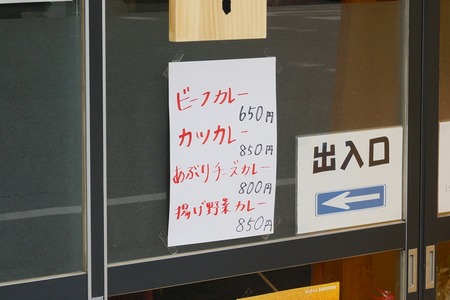 ビーフカレー
650円
カツカレー
850円
あぶりチーズカレー
800円
揚げ野菜カレー
850円
出入口